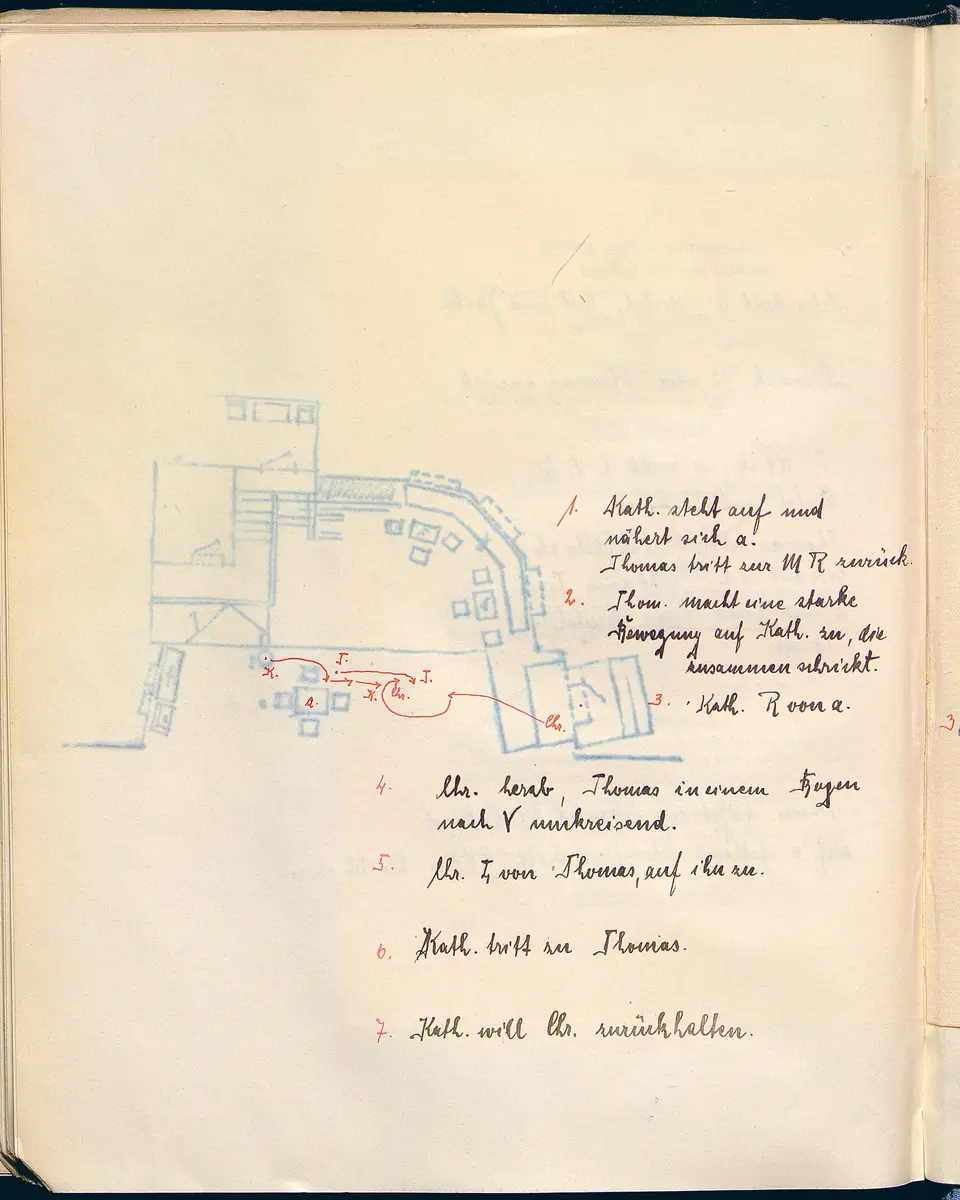 1. Kath. steht auf und
nähert sich a.
Thomas tritt zur M R zurück.
2. Thom. macht eine starke
Bewegung auf Kath. zu, die
zusammenschrickt.
K. T. T.
a. K. Chr.
Chr.
3. Kath. R von a.
3
4. Chr. herab, Thomas in einem Bogen
nach V umkreisend.
5. Chr. L von Thomas, auf ihn zu.
6. Kath. tritt zu Thomas.
7. Kath. will Chr. zurückhalten.